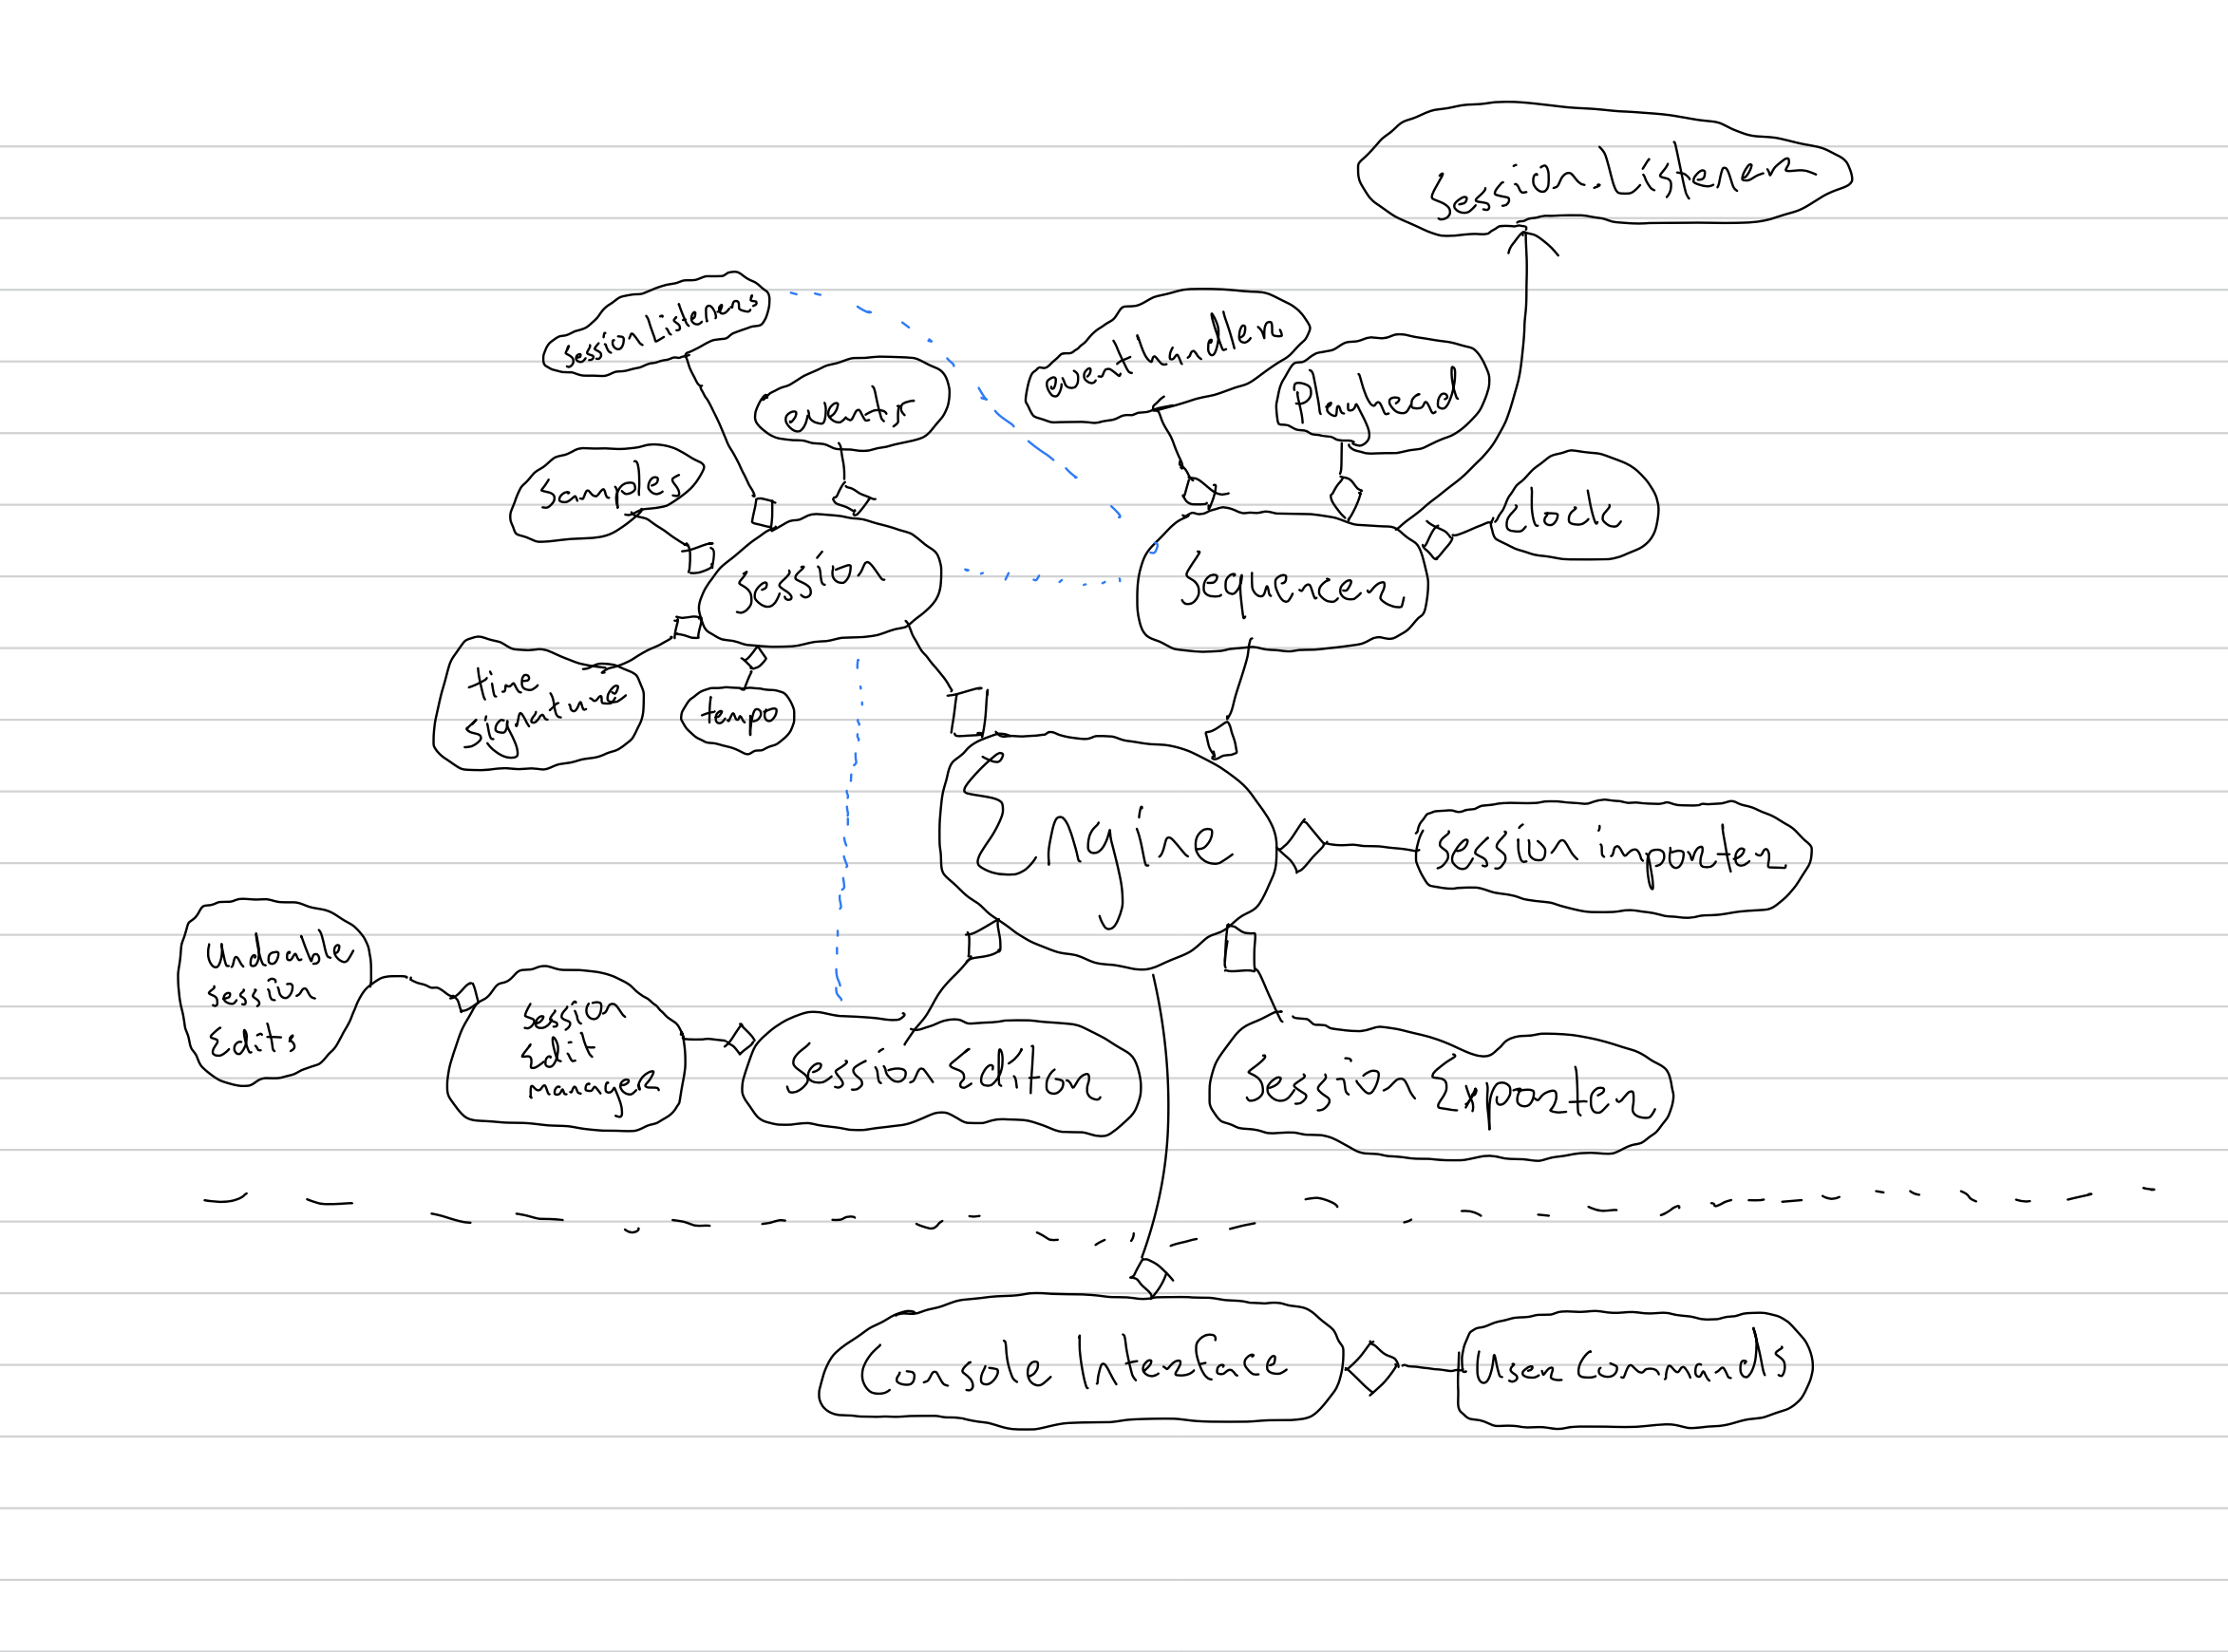 Session.Listener
SessionListeners
eventHandler
Playhead
events
Samples
clock
Session
Sequencer
time
signature
tempo
Engine
Session importer
Undoable
session
Edits
Session
Edit
manager
Session Editor
Session Exporter
Console Interface
User Commands